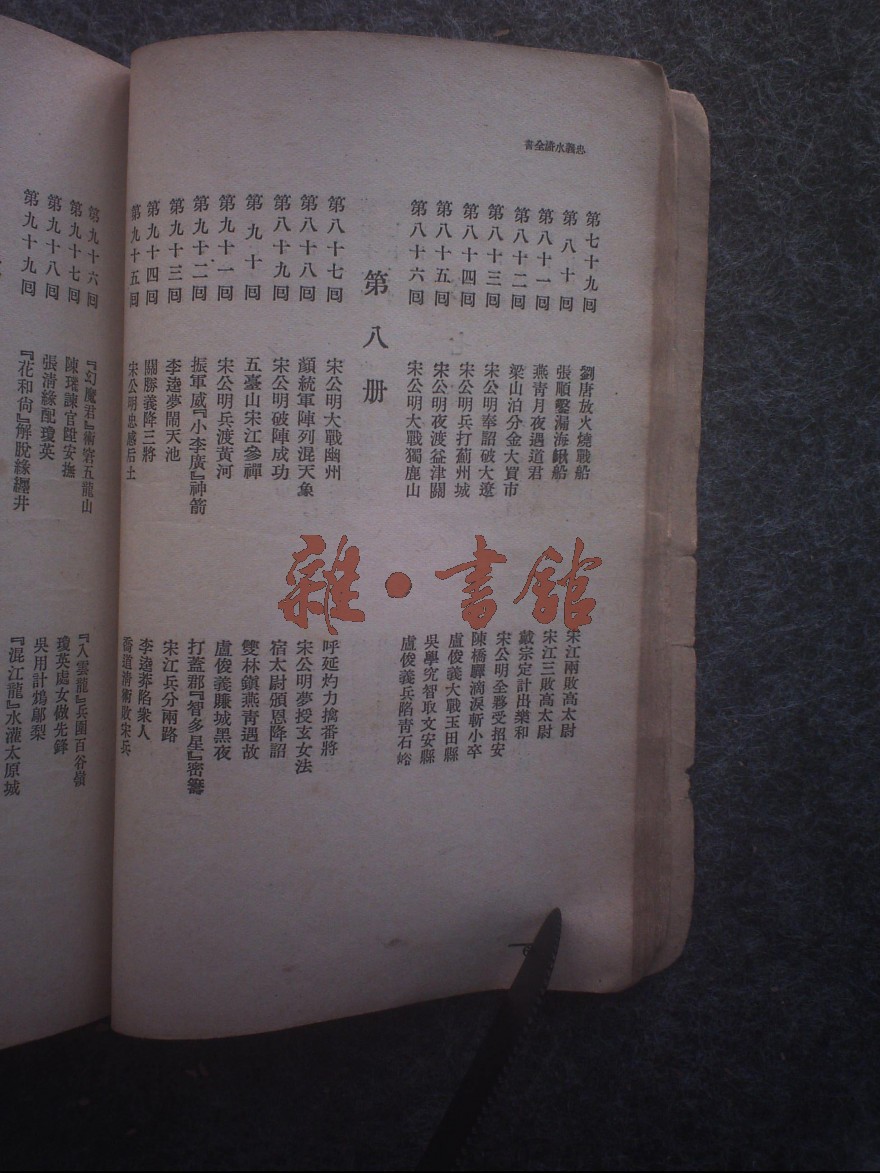 忠義水滸全書
第七十九回 劉唐放火燒戰船 宋江兩敗高太尉
第八十回 張順鑿漏海鰍船 宋江三敗高太尉
第八十一回 燕青月夜遇道君 戴宗定計出樂和
第八十二回 梁山泊分金大買市 宋公明全夥受招安
第八十三回 宋公明奉詔破大遼 陳橋驛滴淚斬小卒
第八十四回 宋公明兵打薊州城 盧俊義大戰玉田縣
第八十五回 宋公明夜渡益津關 吳學究智取文安縣
第八十六回 宋公明大戰獨鹿山 盧俊義兵陷青石峪
第八册
第八十七回 宋公明大戰幽州 呼延灼力擒番將
第八十八回 顏統軍陣列混天象 宋公明夢授玄女法
第八十九回 宋公明破陣成功 宿太尉頒恩降詔
第九十回 五臺山宋江參禪 雙林鎮燕青遇故
第九十一回 宋公明兵渡黃河 盧俊義賺城黑夜
第九十二回 振軍威『小李廣』神箭 打蓋郡『智多星』密籌
第九十三回 李逵夢鬧天池 宋江兵分兩路
第九十四回 關勝義降三將 李逵莽陷衆人
第九十五回 宋公明忠感后土 喬道清術敗宋兵
第九十六回 『幻魔君』術窘五龍山 『入雲龍』兵圍百谷嶺
第九十七回 陳瓘諫官陞安撫 瓊英處女做先鋒
第九十八回 張清緣配瓊英 吳用計鴆鄔梨
第九十九回 『花和尚』解脫緣纏井 『混江龍』水灌太原城
雜·書館